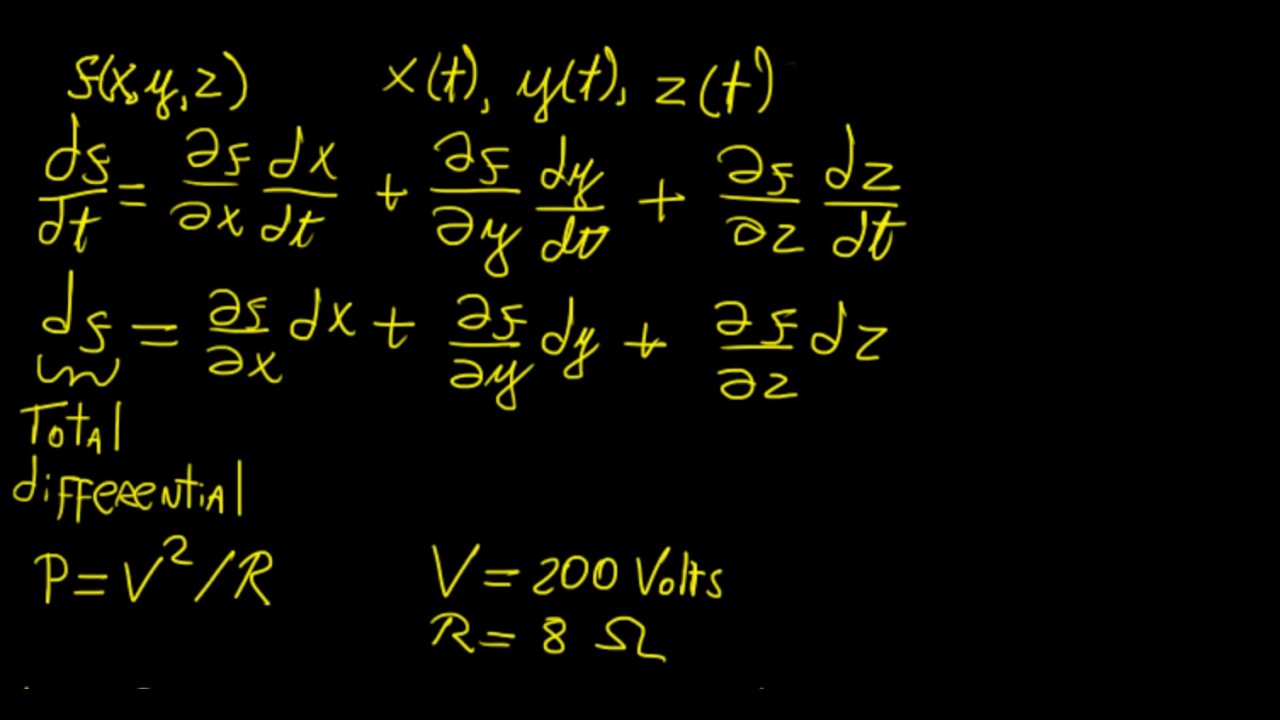 f(x,y,z) x(t), y(t), z(t)
df/dt = ∂f/∂x dx/dt + ∂f/∂y dy/dt + ∂f/∂z dz/dt
df = ∂f/∂x dx + ∂f/∂y dy + ∂f/∂z dz
Total
differential
P = V²/R V = 200 Volts
R = 8 Ω